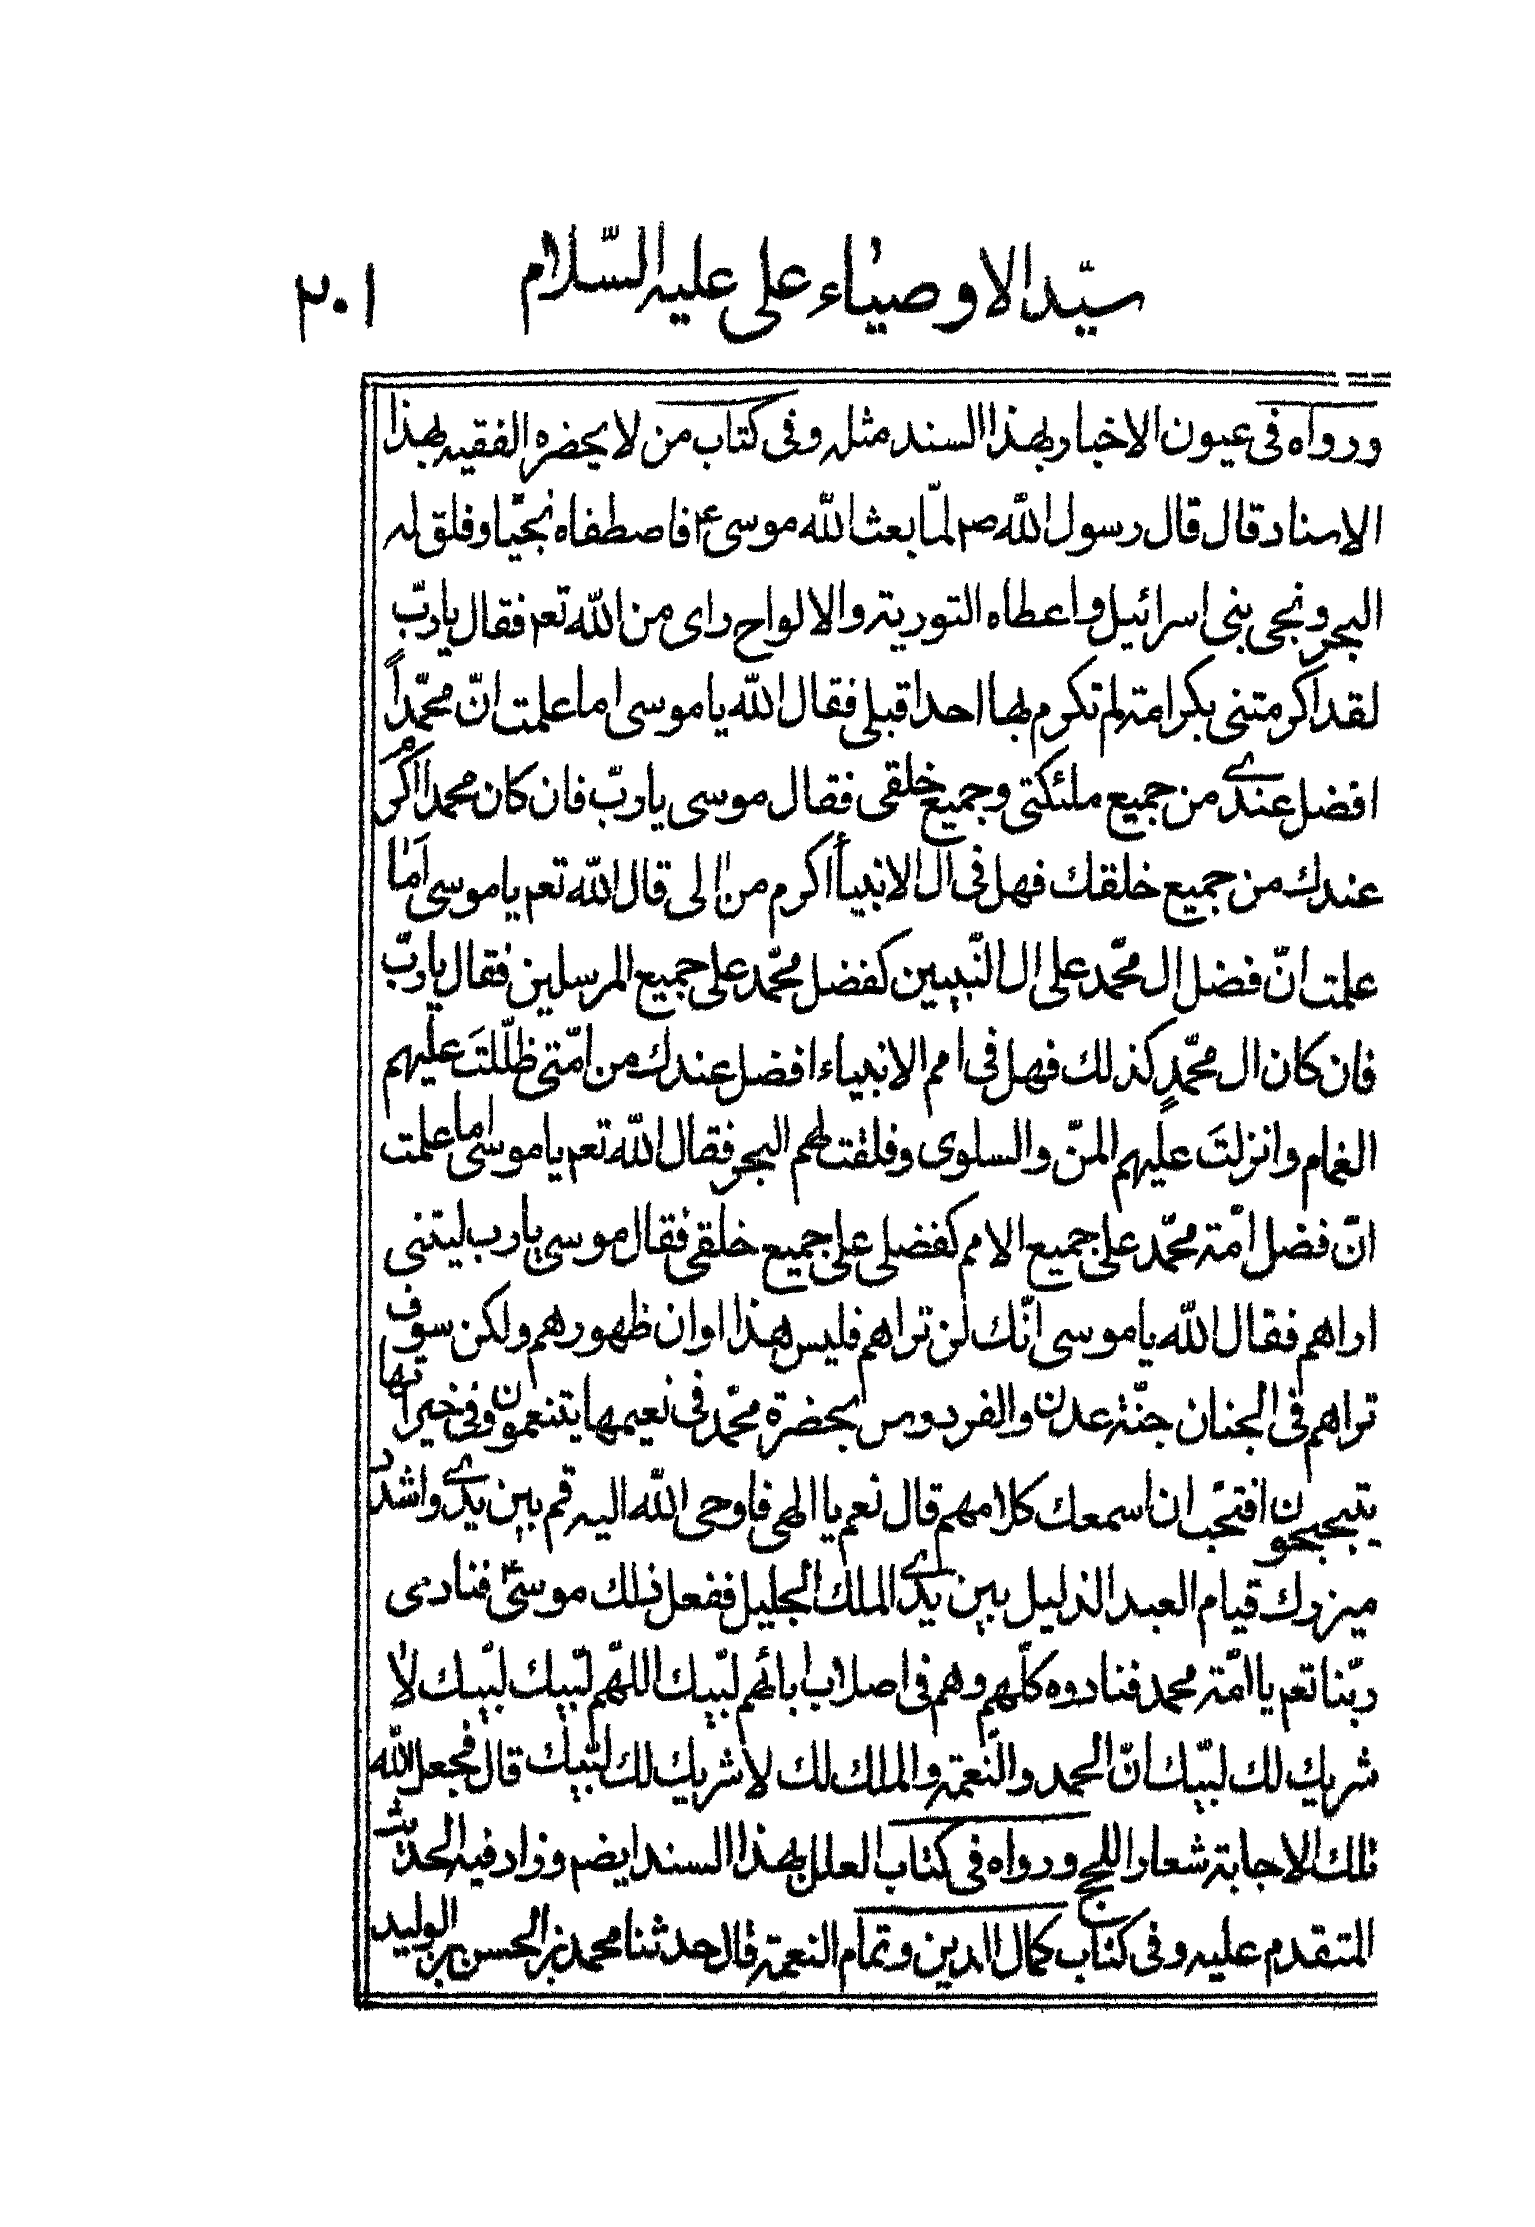 سيّد الاوصياء على عليه السّلام ٢٠١
ورواه فى عيون الاخبار بهذا السند مثله وفى كتاب من لا يحضره الفقيه بهذا
الاسناد قال قال رسول الله ص لمّا بعث الله موسى ع فاصطفاه نجيّا وفلق له
البحر ونجى بنى اسرائيل واعطاه التورية والالواح راى من الله تعم فقال يا ربّ
لقد اكرمتنى بكرامة لم تكرم بها احدا قبلى فقال الله يا موسى اما علمت انّ محمّداً
افضل عندى من جميع ملئكتى وجميع خلقى فقال موسى يا ربّ فان كان محمد اكرم
عندك من جميع خلقك فهل فى ال الانبيأ اكرم من الى قال الله تعم يا موسى اَما
علمت انّ فضل ال محمّد على ال النّبيين كفضل محمّد على جميع المرسلين فقال يا ربّ
فان كان ال محمّدٍ كذلك فهل فى امم الانبياء افضل عندك من امّتى ظلّلتَ عليهم
الغمام وانزلتَ عليهم المنّ والسلوى وفلقت لهم البحر فقال الله تعم يا موسى اما علمت
انّ فضل امّة محمّد على جميع الامم كفضلى على جميع خلقى فقال موسى يا رب ليتنى
اراهم فقال الله يا موسى انّك لن تراهم فليس هذا اوان ظهورهم ولكن سوف
تراهم فى الجنان جنّة عدن والفردوس بحضرة محمّد فى نعيمها يتنعمون وفى خيراتها
يتبجبحون افتحبّ ان اسمعك كلامهم قال نعم يا الهى فاوحى الله اليه قم بين يدى واشدد
ميزرك قيام العبد الذليل بين يدى الملك الجليل ففعل ذلك موسىٰ فنادى
ربّنا تعم يا امّة محمد فنادوه كلّهم وهم فى اصلاب ابائهم لبّيك اللهّم لبّيك لبّيك لا
شريك لك لبّيك انّ الحمد والنّعمة والملك لك لا شريك لك لبّيك قال فجعل الله
تلك الاجابة شعار الحج ورواه فى كتاب العلل بهذا السند ايضم وزاد فيه الحديث
المتقدم عليه وفى كتاب كمال الدين وتمام النعمة قال حدثنا محمد بن الحسن بن الوليد